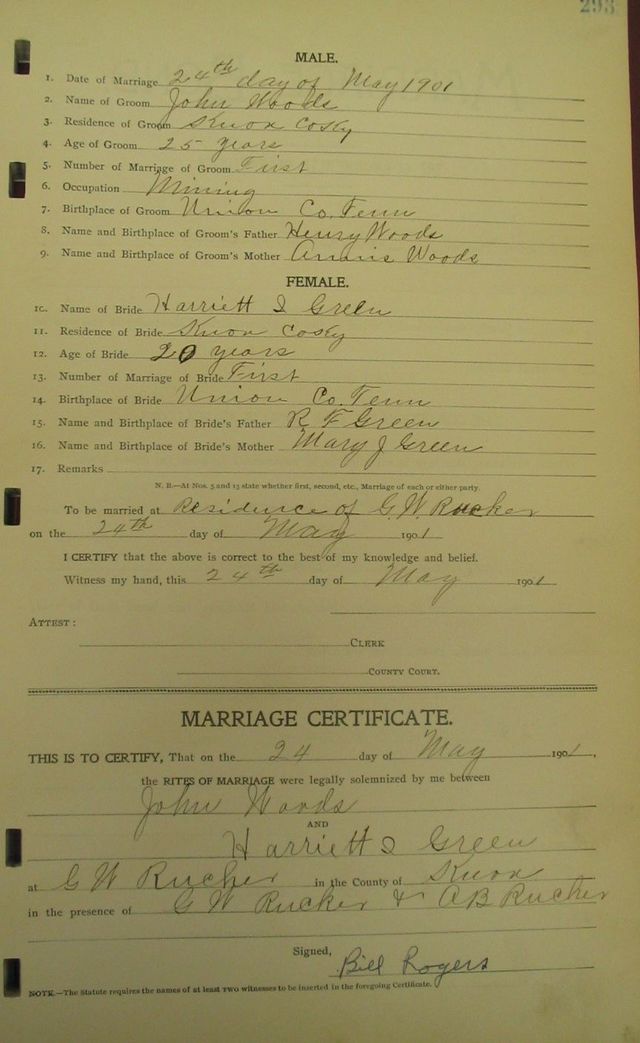 293
MALE.
1. Date of Marriage 24th day of May 1901
2. Name of Groom John Woods
3. Residence of Groom Knox Co Ky
4. Age of Groom 25 years
5. Number of Marriage of Groom First
6. Occupation Mining
7. Birthplace of Groom Union Co. Tenn
8. Name and Birthplace of Groom's Father Henry Woods
9. Name and Birthplace of Groom's Mother Annis Woods
FEMALE.
10. Name of Bride Harriett I Green
11. Residence of Bride Knox Co Ky
12. Age of Bride 20 years
13. Number of Marriage of Bride First
14. Birthplace of Bride Union Co. Tenn
15. Name and Birthplace of Bride's Father R F Green
16. Name and Birthplace of Bride's Mother Mary J Green
17. Remarks
N. B.—At Nos. 5 and 13 state whether first, second, etc., Marriage of each or either party.
To be married at Residence of G. W. Rucker
on the 24th day of May 1901
I CERTIFY that the above is correct to the best of my knowledge and belief.
Witness my hand, this 24th day of May 1901
ATTEST:
CLERK
COUNTY COURT.
MARRIAGE CERTIFICATE.
THIS IS TO CERTIFY, That on the 24 day of May 1901,
the RITES OF MARRIAGE were legally solemnized by me between
John Woods
AND
Harriett I Green
at G W Rucker in the County of Knox
in the presence of G W Rucker & A B Rucker
Signed,
Bill Rogers
NOTE.—The Statute requires the names of at least TWO witnesses to be inserted in the foregoing Certificate.